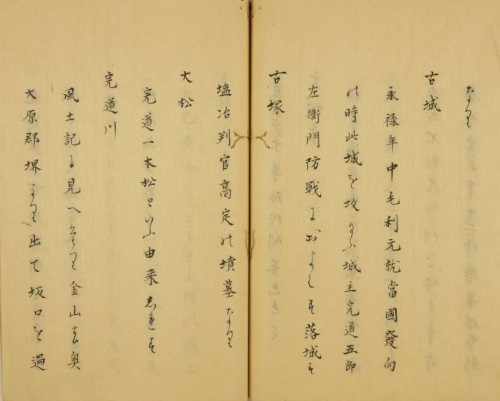 なり
古城
永禄年中毛利元就當國發向
の時此城を攻しかハ城主完道五郎
左衛門防戦におよハす落城す
古塚
塩冶判官高定の墳墓なり
大松
完道一本松といふ由来しれす
完道川
風土記に見へたり金山奥
大原郡堺より出て坂口を過